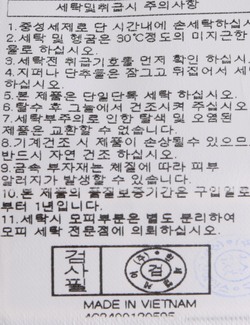 세탁및취급시 주의사항
1.중성세제로 단 시간내에 손세탁하
2.세탁 및 헹굼은 30°C정도의 미지근한
물로 하십시오.
3.세탁전 취급기호를 먼저 확인 하십시
4.지퍼나 단추등은 잠그고 뒤집어서 세
하십시오.
5.본 제품은 단일단독 세탁 하십시오.
6.탈수 후 그늘에서 건조시켜 주십시오
7.세탁부주의로 인한 탈색 및 오염된
제품은 교환할 수 없습니다.
8.기계건조 시 제품이 손상될수 있으므
반드시 자연 건조 하십시오.
9.금속 부자재는 체질에 따라 피부
알러지가 발생할 수 있습니다.
10.본 제품의 품질보증기간은 구입일로
부터 1년입니다.
11.세탁시 모피부분은 별도 분리하여
모피 세탁 전문점에 의뢰하십시오.
검사필
검
MADE IN VIETNAM